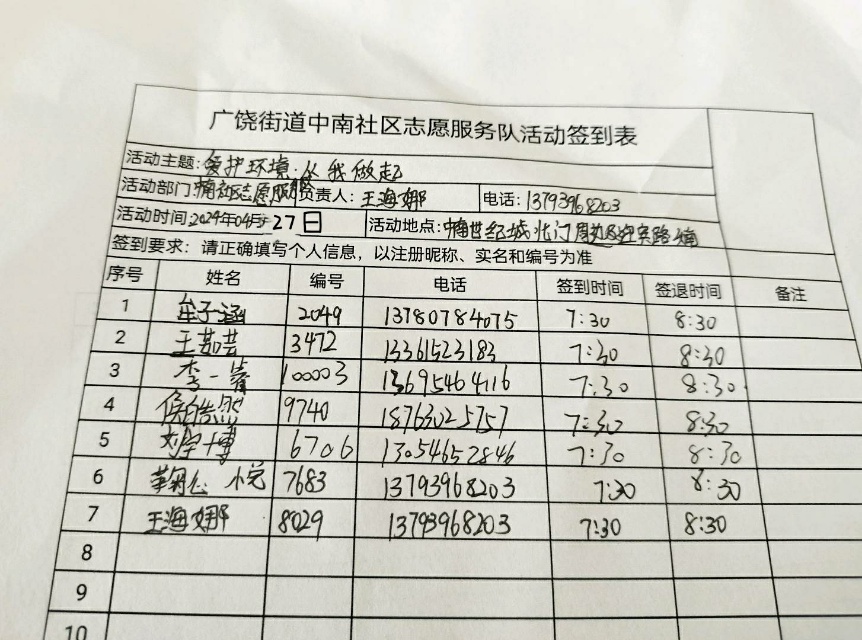 广饶街道中南社区志愿服务队活动签到表
活动主题:爱护环境.从我做起
活动部门:中南社区志愿服务队 负责人:王海娜 电话:13793968203
活动时间:2024年04月27日 活动地点:中南世纪城北门周边及迎宾路
签到要求:请正确填写个人信息,以注册昵称、实名和编号为准
序号 姓名 编号 电话 签到时间 签退时间 备注
1 牟子涵 2049 13780784075 7:30 8:30
2 王茹芸 3472 13361523183 7:30 8:30
3 李一睿 100003 13695464116 7:30 8:30
4 侯皓然 9740 18763025757 7:30 8:30
5 刘学博 6706 13054652846 7:30 8:30
6 小悦 7683 13793968203 7:30 8:30
7 王海娜 8029 13793968203 7:30 8:30
8
9
10